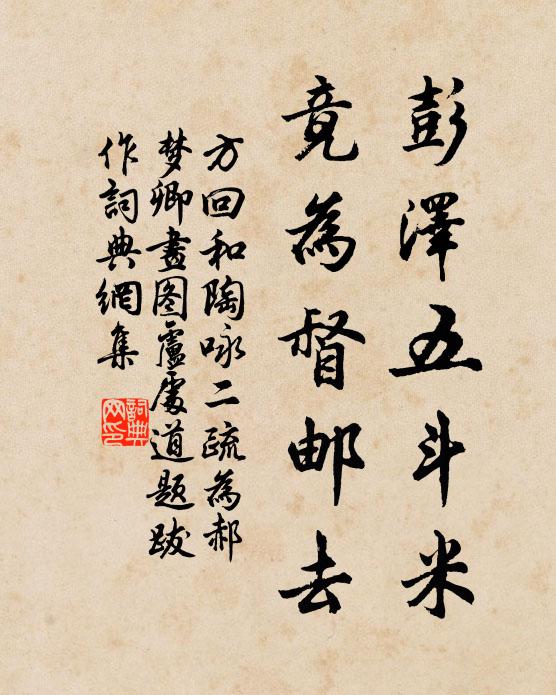 彭澤五斗米
竟為督邮去
方回和陶咏二疏為郝
梦卿畫图盧處道题跋
作詞典網集
詞典網印